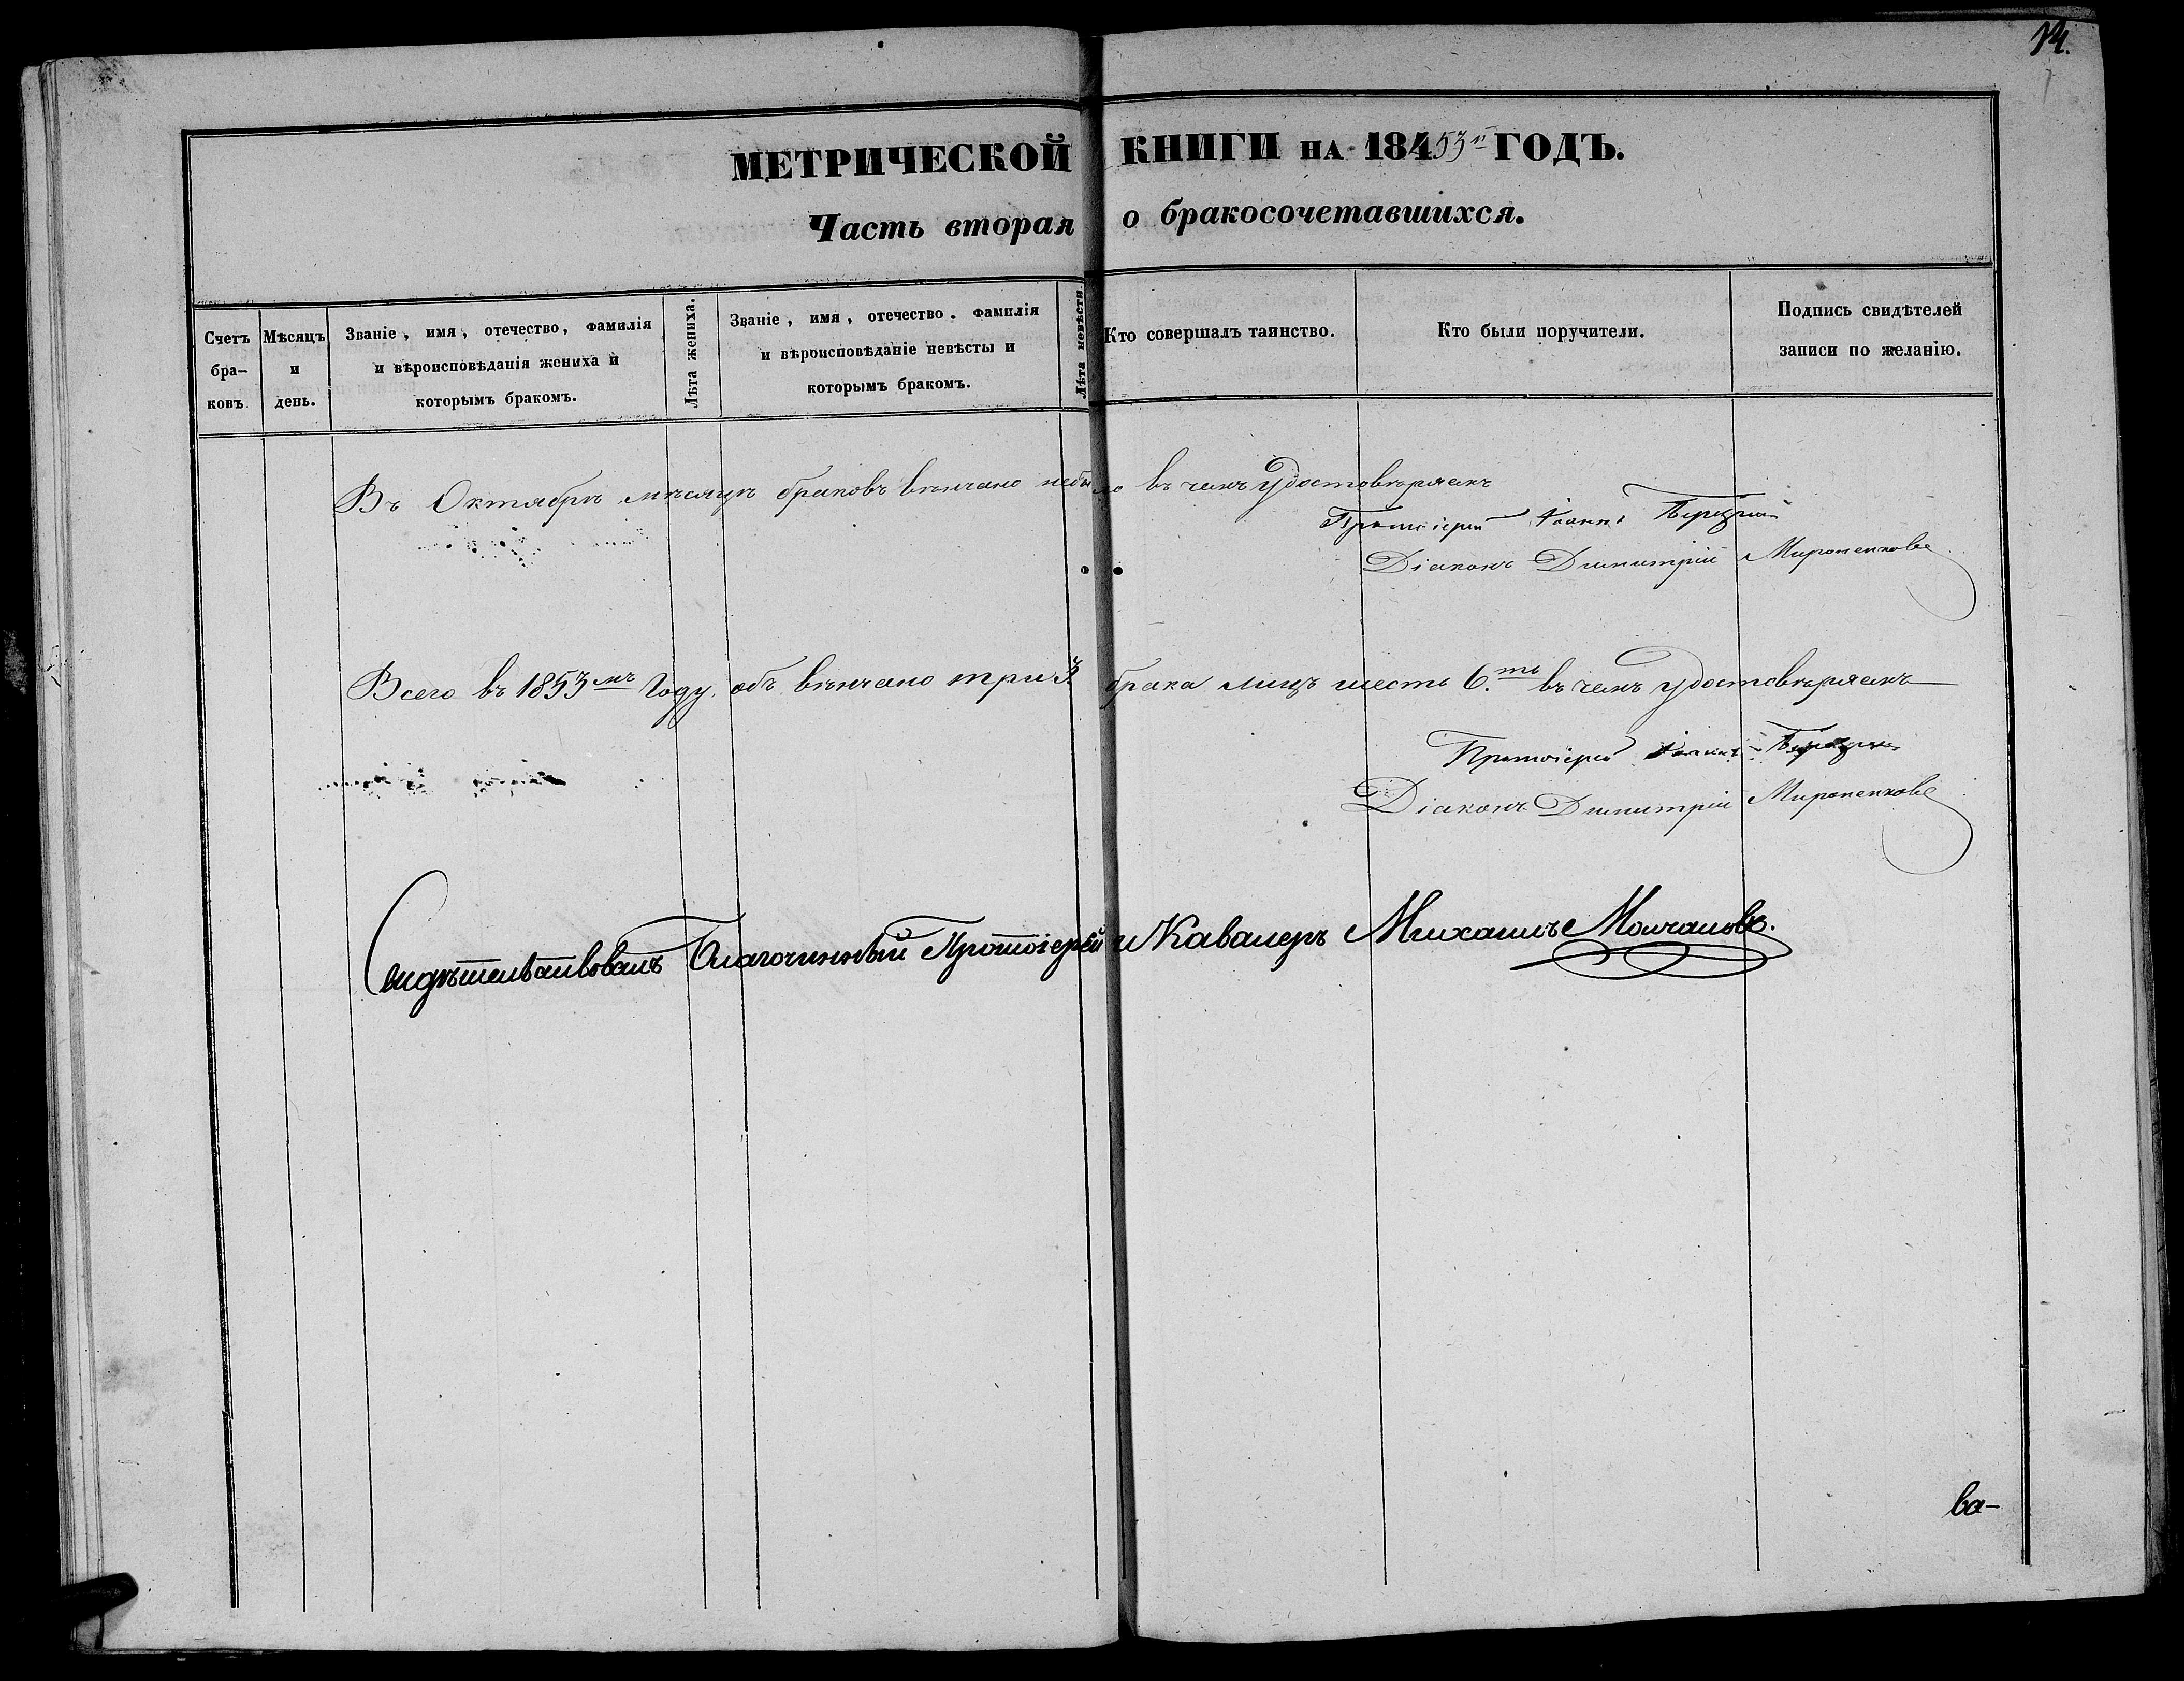 14.
МЕТРИЧЕСКОЙ КНИГИ НА 18453й ГОДЪ.
Часть вторая о бракосочетавшихся.
Счетъ бра-ковъ.
Мѣсяцъ и день.
Званіе, имя, отечество, фамилія и вѣроисповѣданія жениха и которымъ бракомъ.
Лѣта жениха.
Званіе, имя, отечество. фамилія и вѣроисповѣданіе невѣсты и которымъ бракомъ.
Лѣта невѣсты.
Кто совершалъ таинство.
Кто были поручители.
Подпись свидѣтелей записи по желанію.
Въ Октябрѣ мѣсяцѣ браковъ вѣнчано небыло въ чемъ удостовѣряемъ
Протоіерей Іоаннъ
Діаконъ Димитрій Мироненковъ
Всего въ 1853мъ Году. объ вѣнчано три 3. брака лицъ шесть 6.ть въ чемъ удостовѣряемъ
Протоіерей Іоаннъ
Діаконъ Димитрій Мироненковъ
Свидѣтельствовалъ Благочинный Протоіерей и Кавалеръ Михаилъ Молчановъ.
ва-